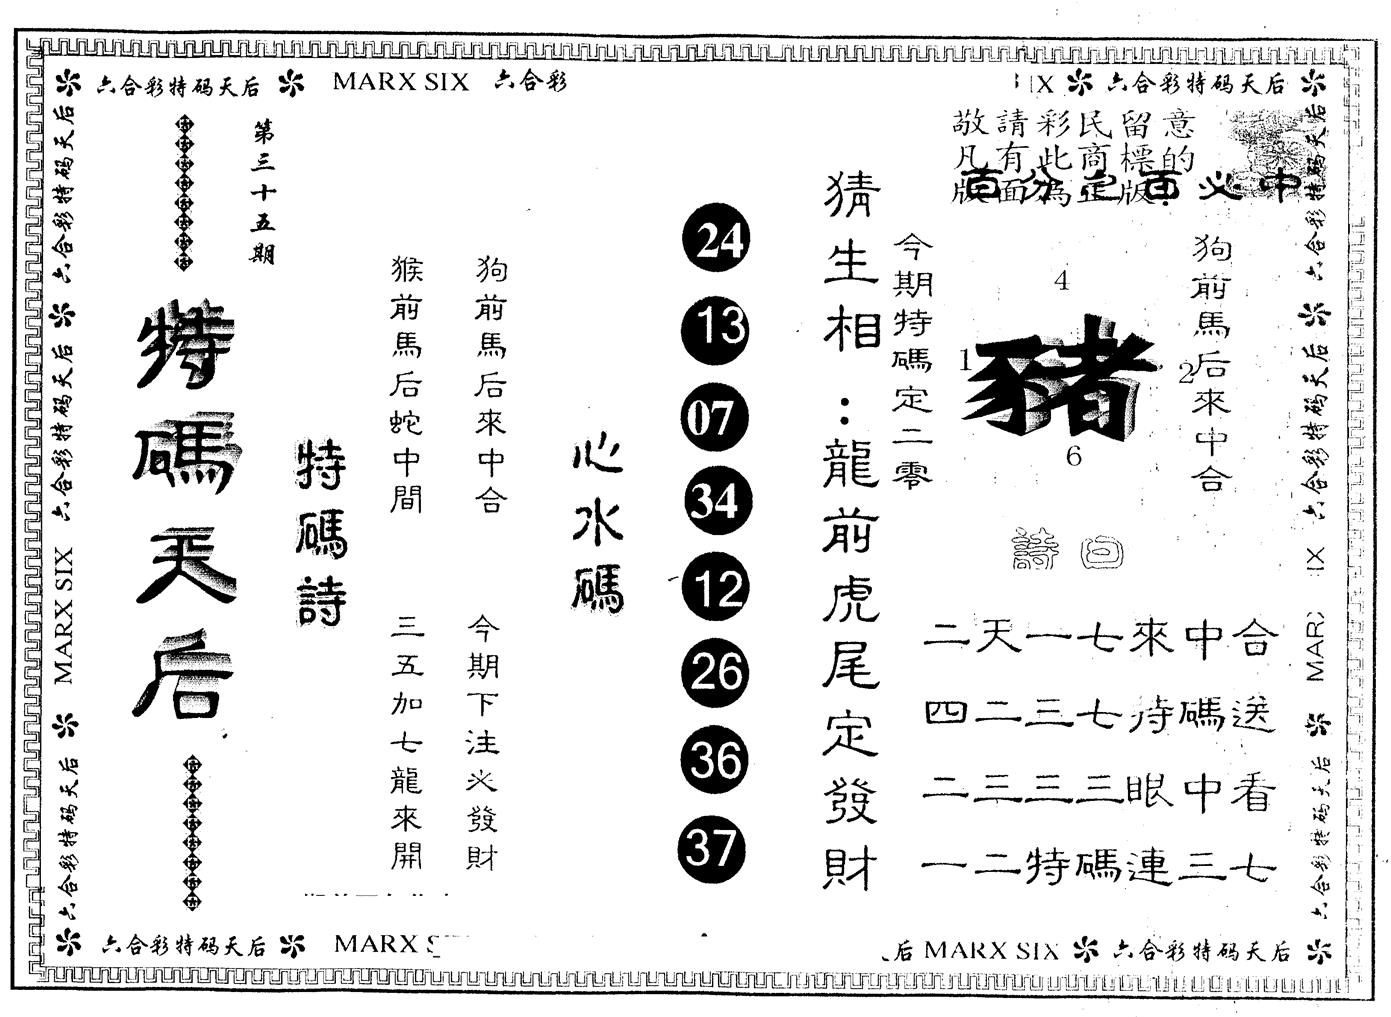 六合彩特码天后 MARX SIX 六合彩
IX 六合彩特码天后
第三十五期
特碼天后
特碼詩
猴前馬后蛇中間
三五加七龍來開
狗前馬后來中合
今期下注必發財
心水碼
24
13
07
34
12
26
36
37
猜生相：龍前虎尾定發財
今期特碼定二零
敬請彩民留意
凡有此商標的
版面為正版
百分之百必中
4
1 豬 2
6
狗前馬后來中合
詩曰
二天一七來中合
四二三七待碼送
二三三三眼中看
一二特碼連三七
六合彩特码天后
六合彩特码天后
MARX SIX
六合彩特码天后
六合彩特码天后
六合彩特码天后
IX
MAR
六合彩特码天后
六合彩特码天后 MARX S
后 MARX SIX 六合彩特码天后